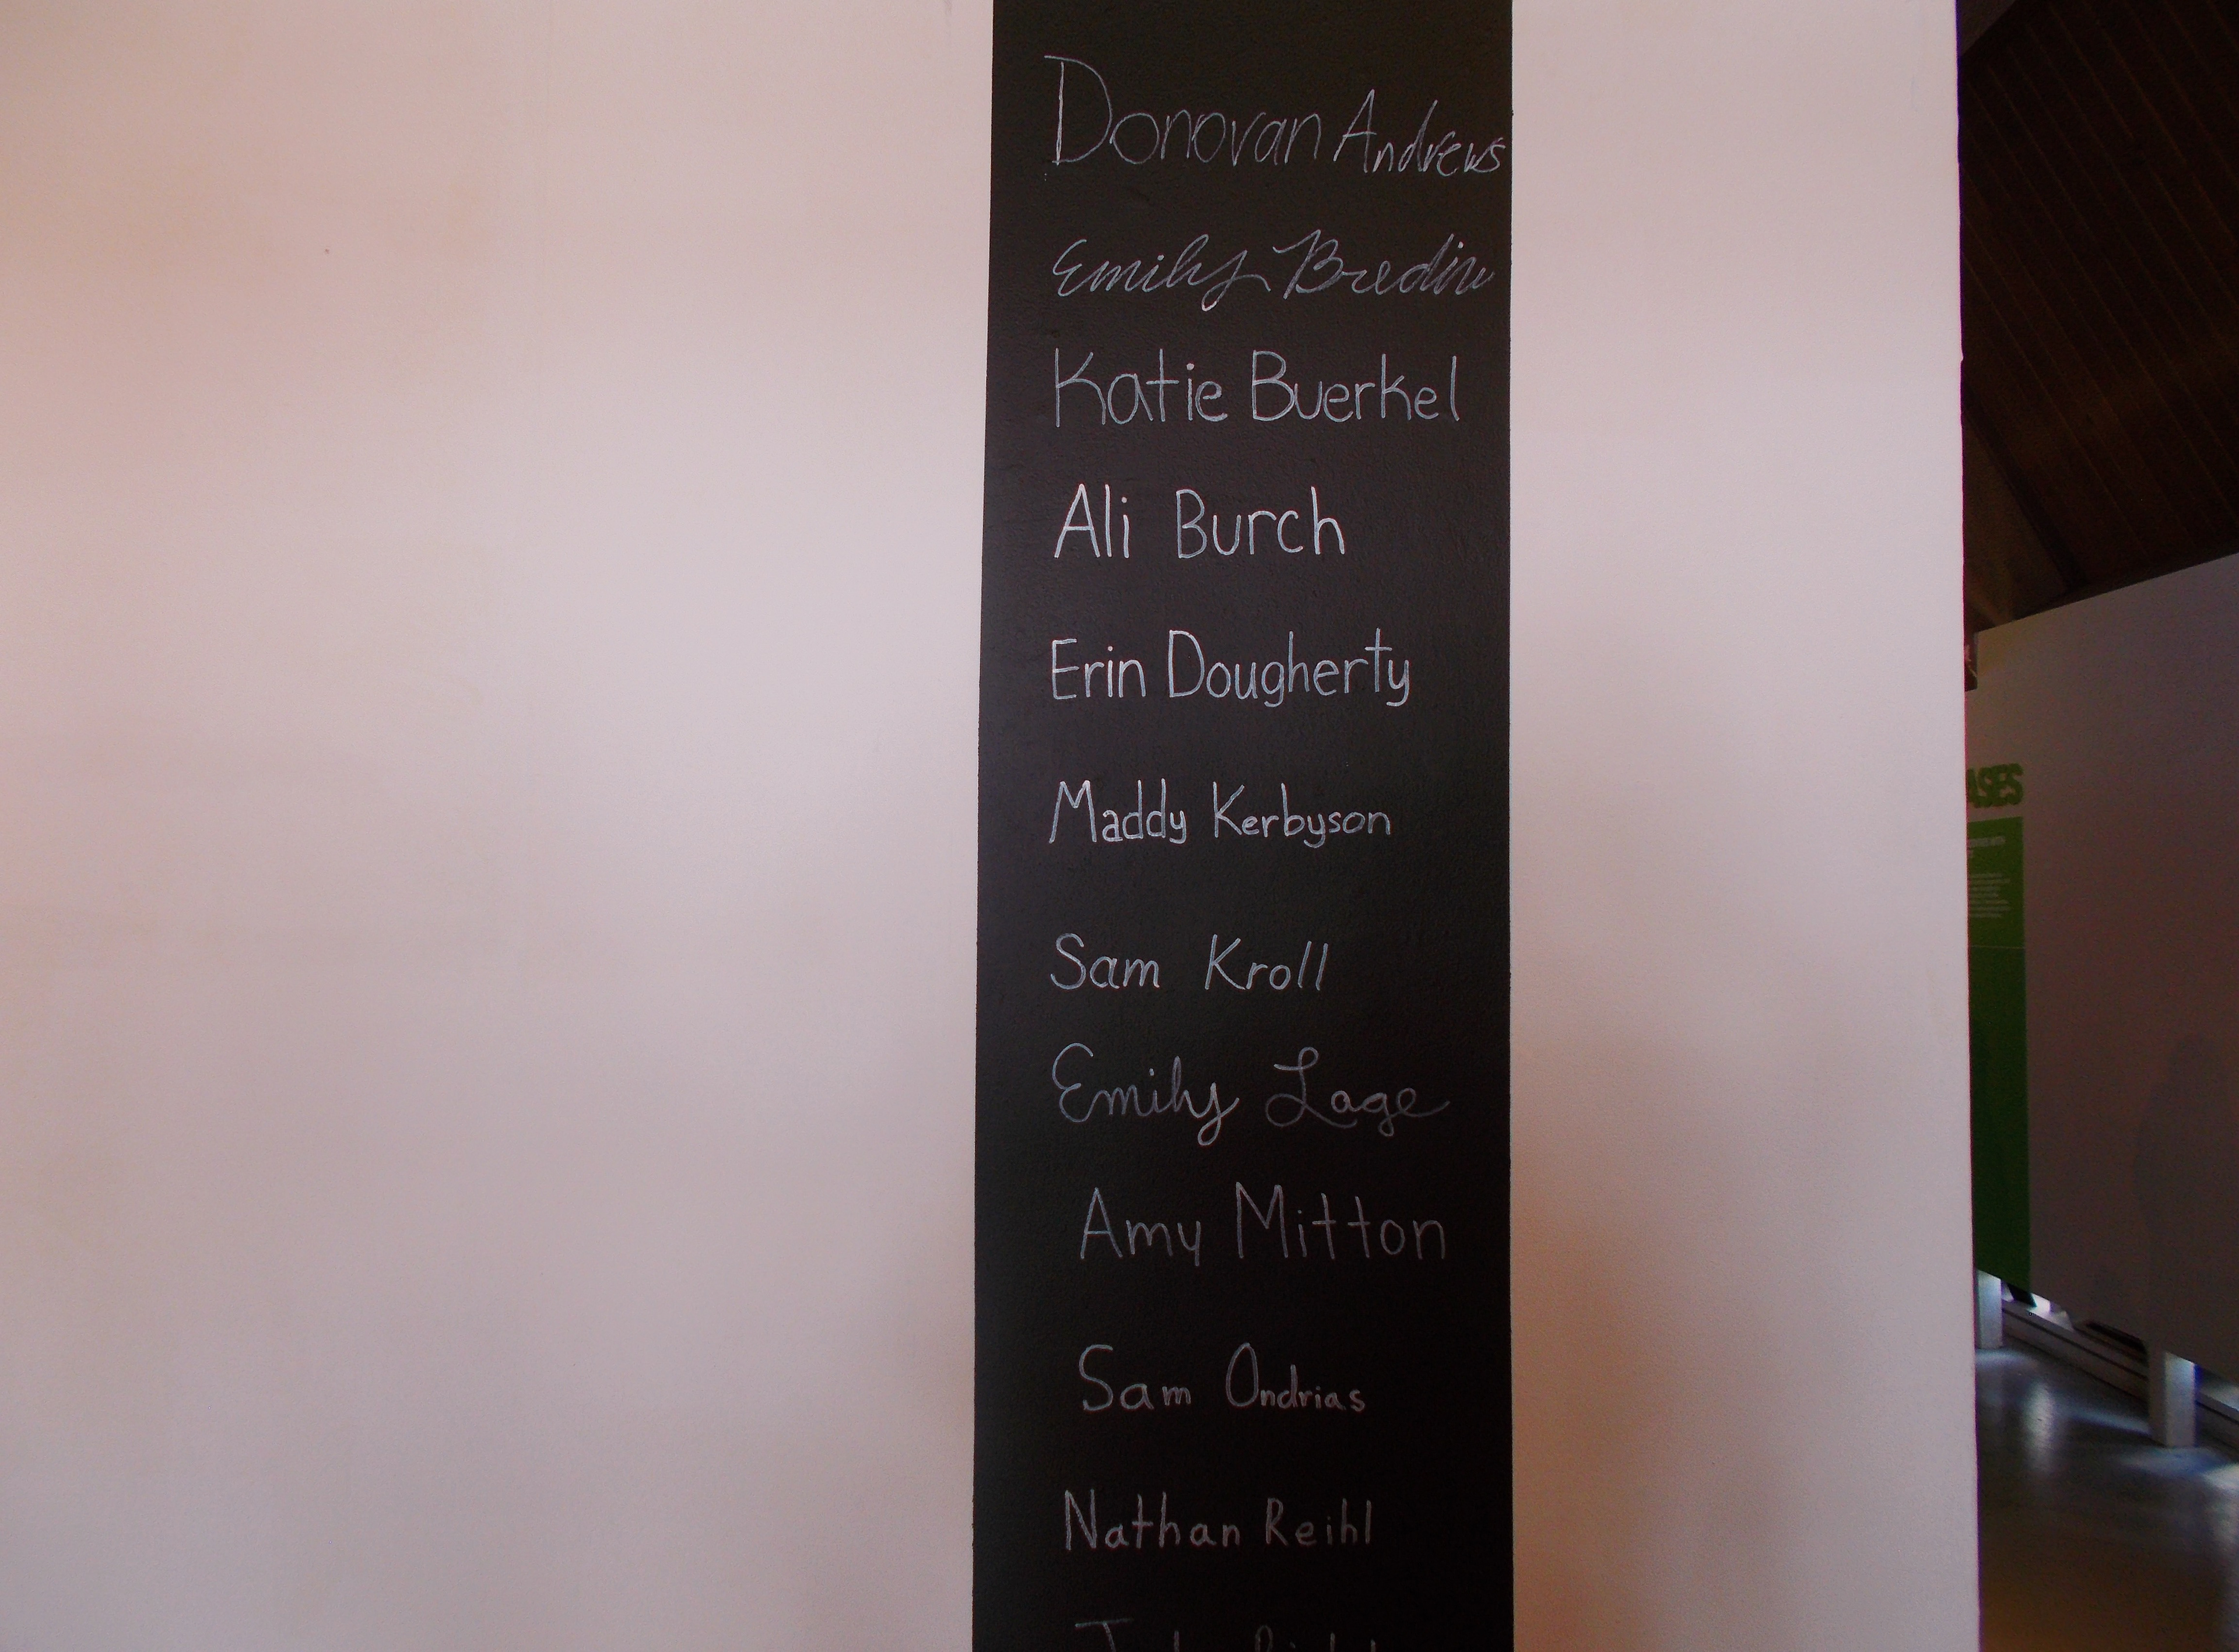 Donovan Andrews
Emily Bredin
Katie Buerkel
Ali Burch
Erin Dougherty
Maddy Kerbyson
Sam Kroll
Emily Lage
Amy Mitton
Sam Ondrias
Nathan Reihl
ASES